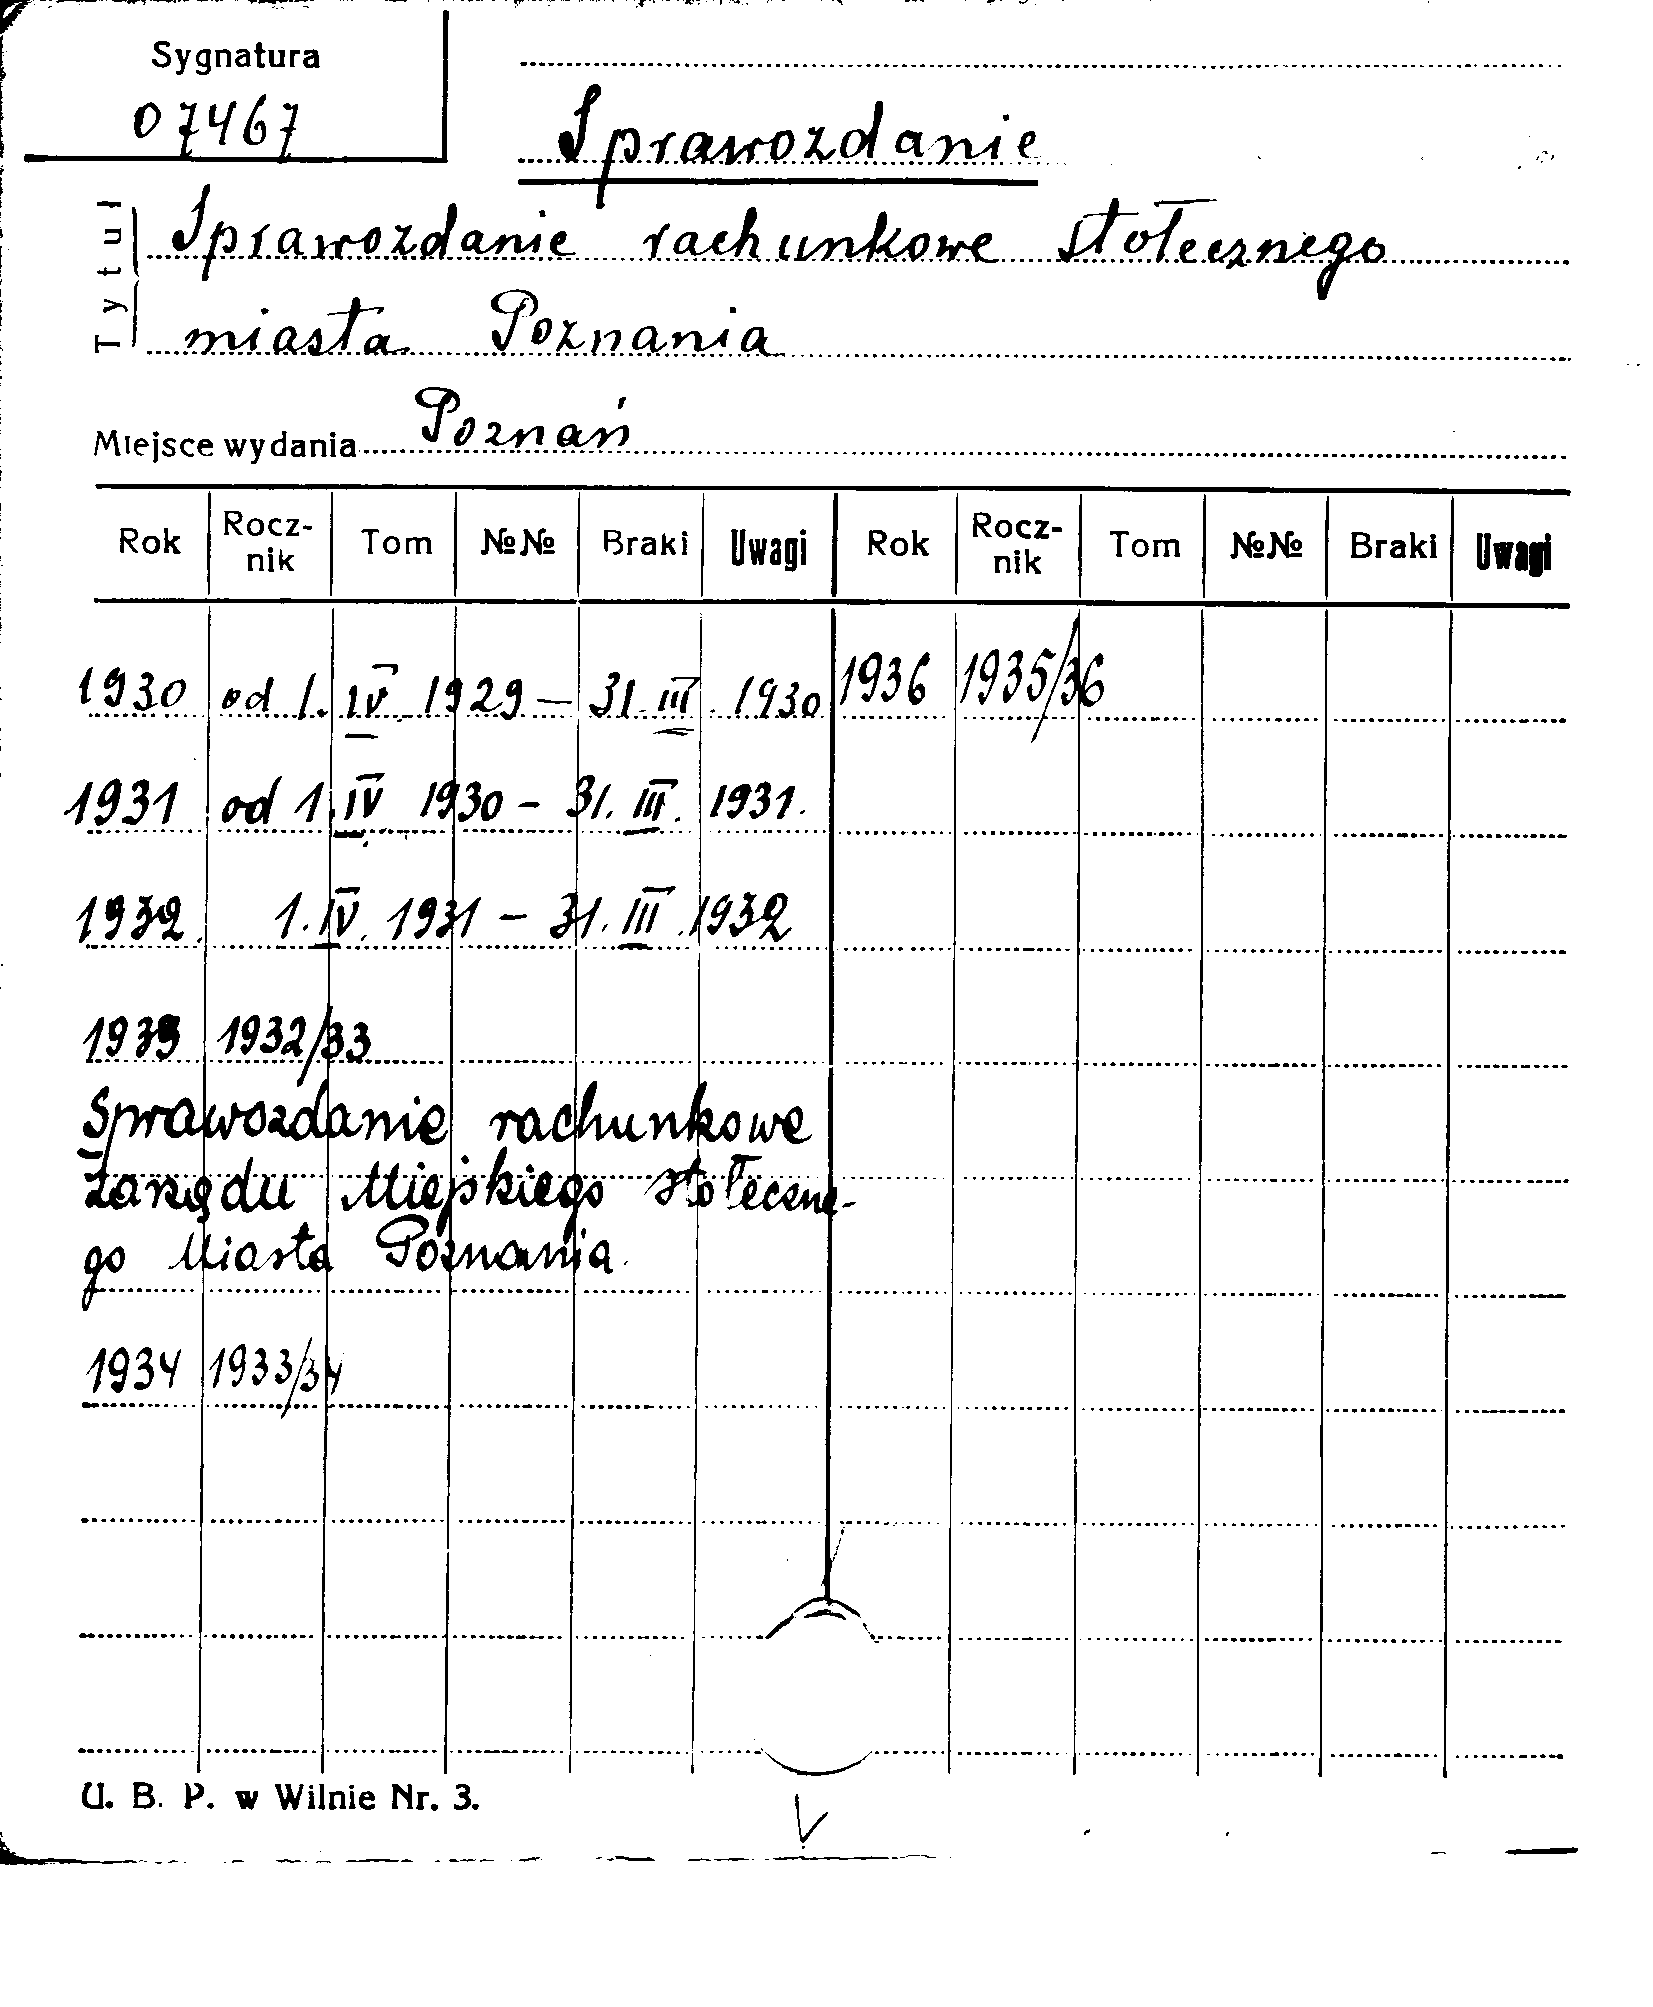 Sygnatura
07467
Sprawozdanie
Tytuł
Sprawozdanie rachunkowe stołecznego
miasta Poznania
Miejsce wydania Poznań
Rok Rocz-nik Tom №№ Braki Uwagi Rok Rocz-nik Tom №№ Braki Uwagi
1930 od 1. IV 1929 – 31. III. 1930 1936 1935/36
1931 od 1. IV 1930 – 31. III. 1931.
1932 1. IV. 1931 – 31. III. 1932
1933 1932/33
Sprawozdanie rachunkowe
Zarządu Miejskiego stołeczne-
go Miasta Poznania.
1934 1933/34
U. B. P. w Wilnie Nr. 3.
V